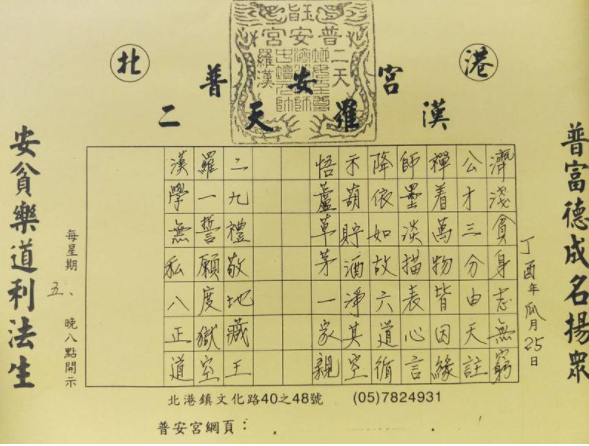 北 港
普安宮
二天羅漢
普富德成名揚眾
丁酉年瓜月25日
濟淺貪身志無窮
公才三分由天註
禪着萬物皆因緣
師墨淡描表心言
降依如故六道循
示葫貯酒淨其空
悟蘆草茅一家親
二九禮敬地藏王
羅一誓願度獄空
漢學無私八正道
每星期五、晚八點開示
安貧樂道利法生
北港鎮文化路40之48號 (05)7824931
普安宮網頁：